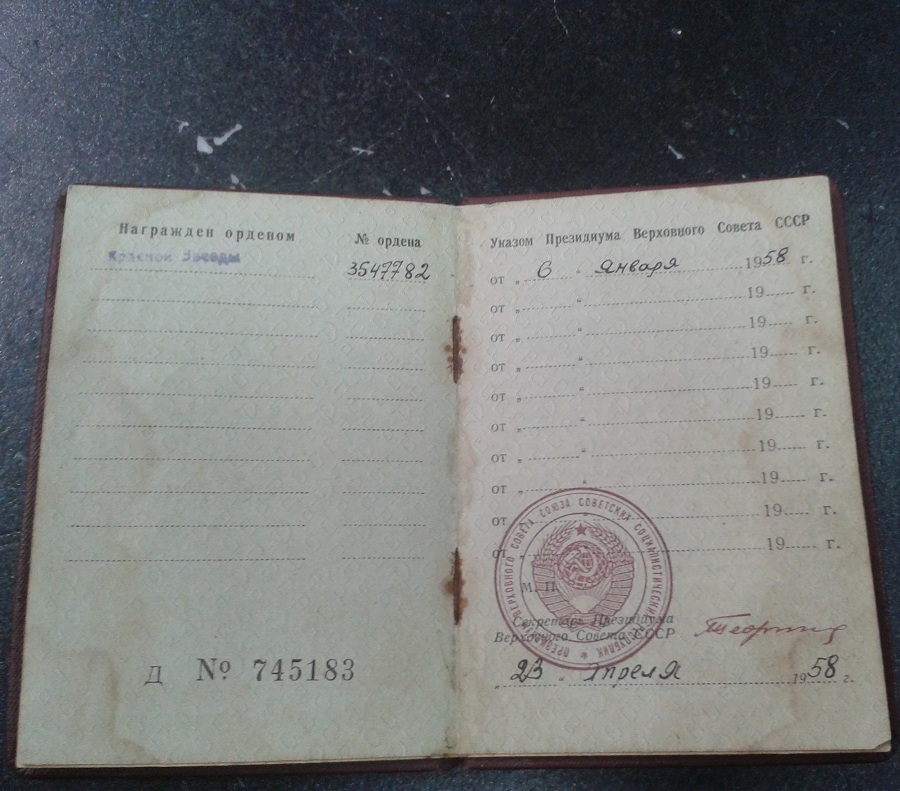 Награжден орденом
№ ордена
Красной Звезды
3547782
Д № 745183
Указом Президиума Верховного Совета СССР
от „ 6 “ Января 1958 г.
от „ “ 19 г.
от „ “ 19 г.
от „ “ 19 г.
от „ “ 19 г.
от „ “ 19 г.
от „ “ 19 г.
от „ “ 19 г.
от „ “ 19 г.
от „ “ 19 г.
ПРЕЗИДИУМ ВЕРХОВНОГО СОВЕТА СОЮЗА СОВЕТСКИХ СОЦИАЛИСТИЧЕСКИХ РЕСПУБЛИК
М. П.
Секретарь Президиума
Верховного Совета СССР
„ 23 “ Апреля 1958 г.